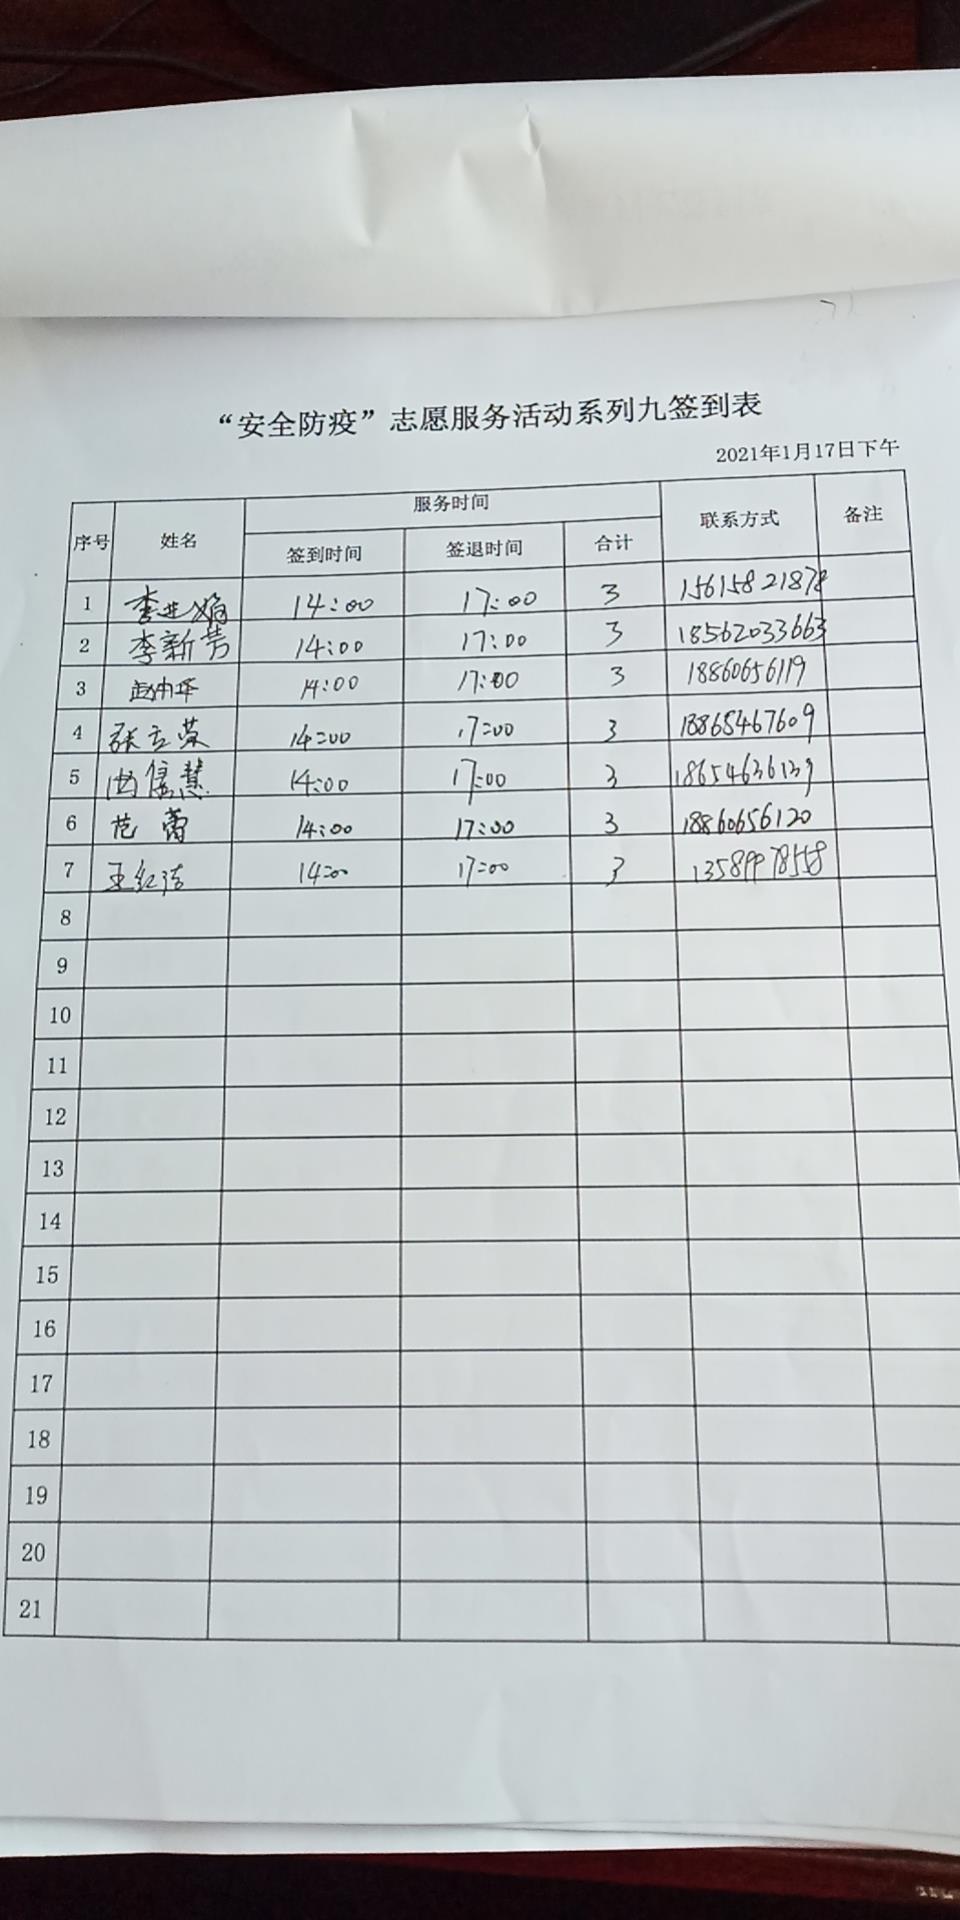 “安全防疫”志愿服务活动系列九签到表
2021年1月17日下午
序号 姓名 服务时间 联系方式 备注
签到时间 签退时间 合计
1 李进娟 14:00 17:00 3 15615821878
2 李新芳 14:00 17:00 3 18562033663
3 14:00 17:00 3 18860656119
4 张立荣 14:00 17:00 3 18865467609
5 信慧 14:00 17:00 3 18654636139
6 范蕾 14:00 17:00 3 18860656120
7 王红洁 14:00 17:00 3
8
9
10
11
12
13
14
15
16
17
18
19
20
21